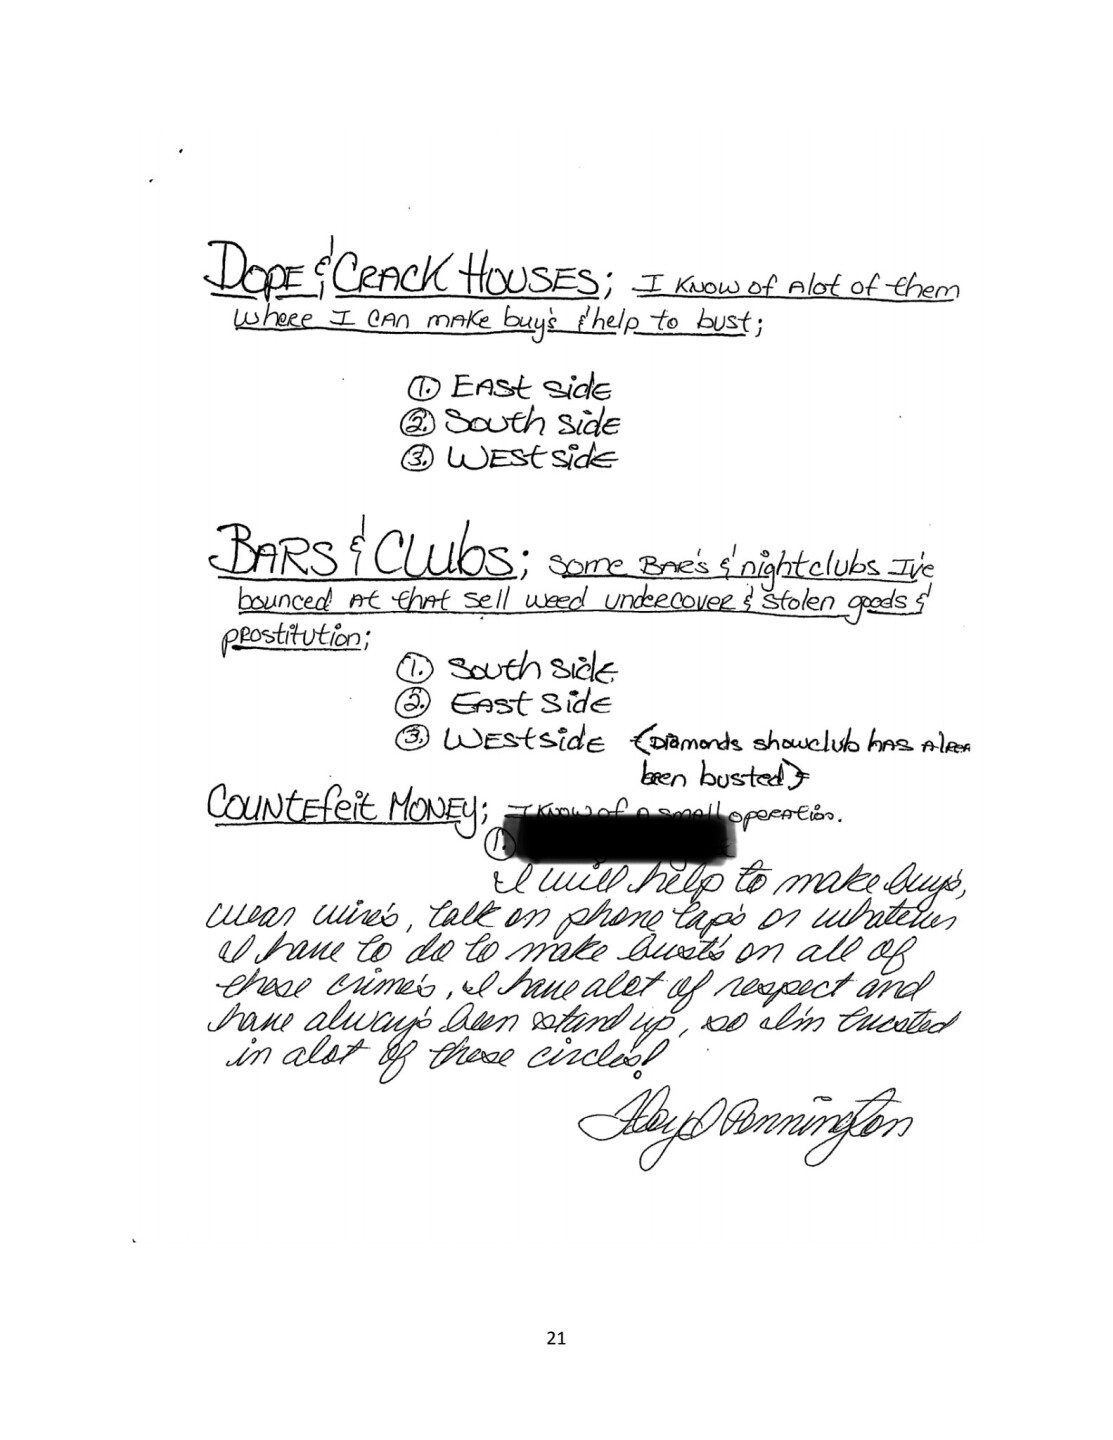 DOPE & CRACK HOUSES; I KNOW of Alot of them
where I CAN MAKE buy's & help to bust;
1. EASt sidE
2. South sidE
3. WESt sidE
BARS & Clubs; Some BAR's & nightclubs I've
bounced At that sell weed undercover & stolen goods &
prostitution;
1. South side
2. EASt Side
3. WEStsidE (Diamonds showclub hAS
been busted)
COUNtEfeit MONEy; I KNow of A small operation.
1.
I will help to make buy's,
wear wire's, talk on phone tap's or whatever
I have to do to make bust's on all of
these crime's, I have alot of respect and
have always been stand up, so I'm trusted
in alot of these circles!
Floyd Pennington
21